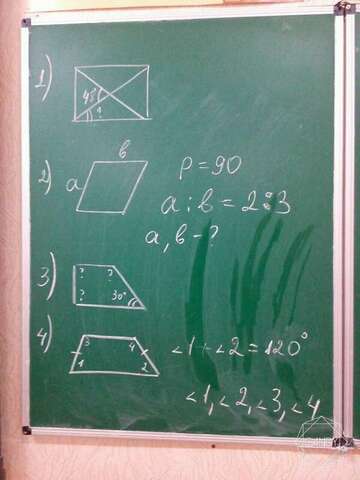 1)
48°
?
2)
a
b
P = 90
a : b = 2 : 3
a, b - ?
3)
? ?
? 30°
4)
3 4
1 2
∠1 + ∠2 = 120°
∠1, ∠2, ∠3, ∠4